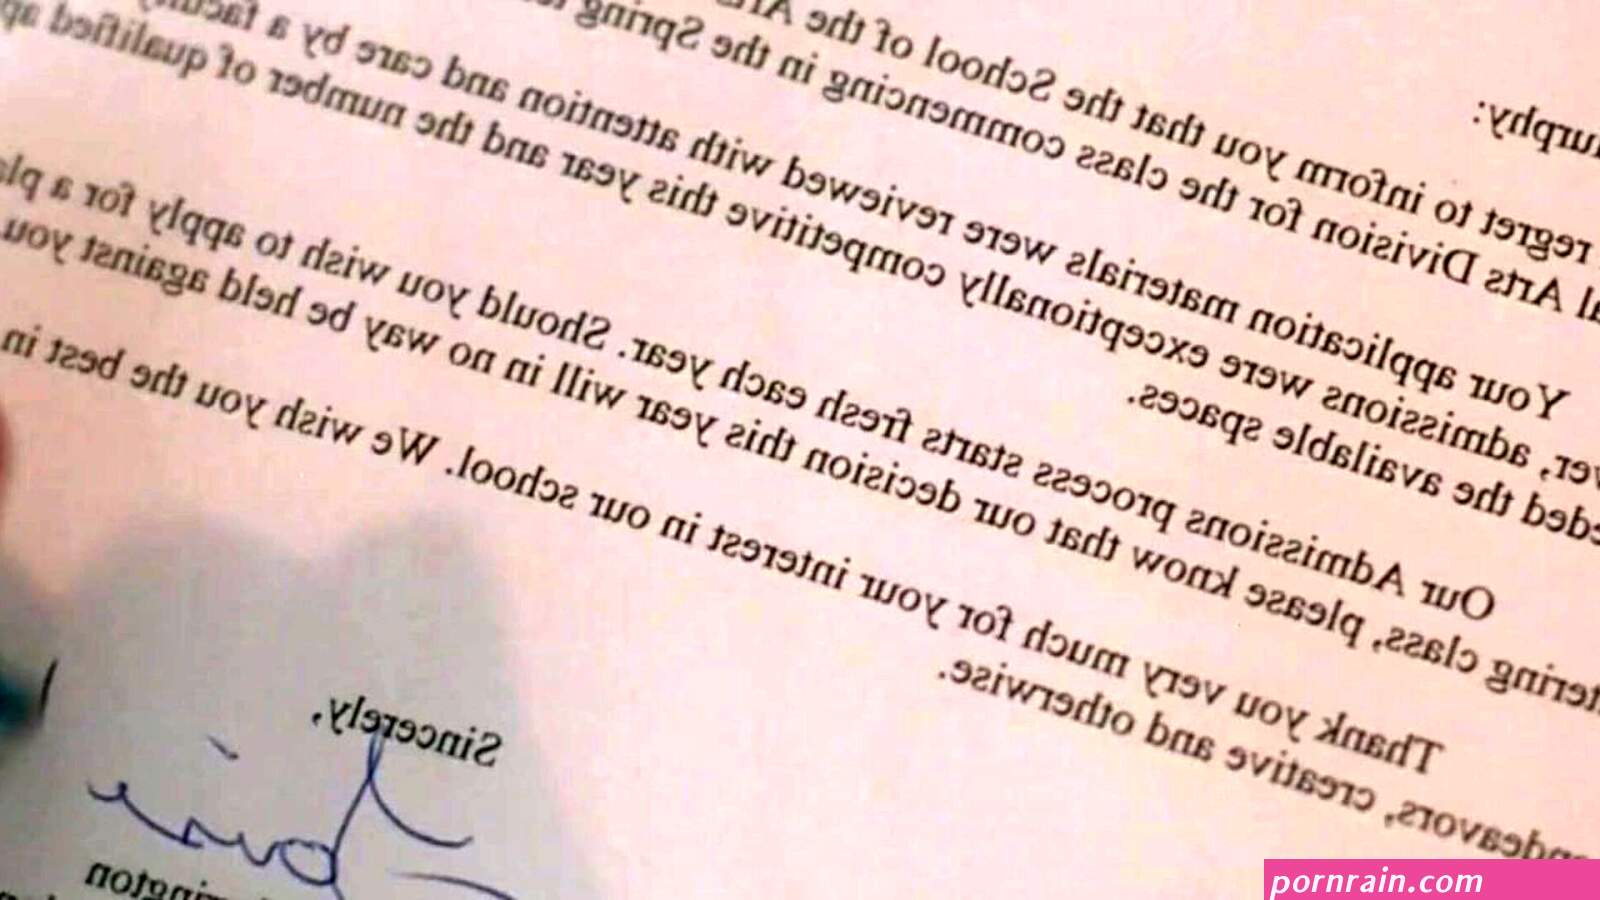 urphy:
regret to inform you that the School of the
al Arts Division for the class commencing in the Spring
Your application materials were reviewed with attention and care by a
ver, admissions were exceptionally competitive this year and the number of qualified ap
eded the available spaces.
Our Admissions process starts fresh each year. Should you wish to apply for a pla
tering class, please know that our decision this year will in no way be held against you
Thank you very much for your interest in our school. We wish you the best in
endeavors, creative and otherwise.
Sincerely,
ington
pornrain.com